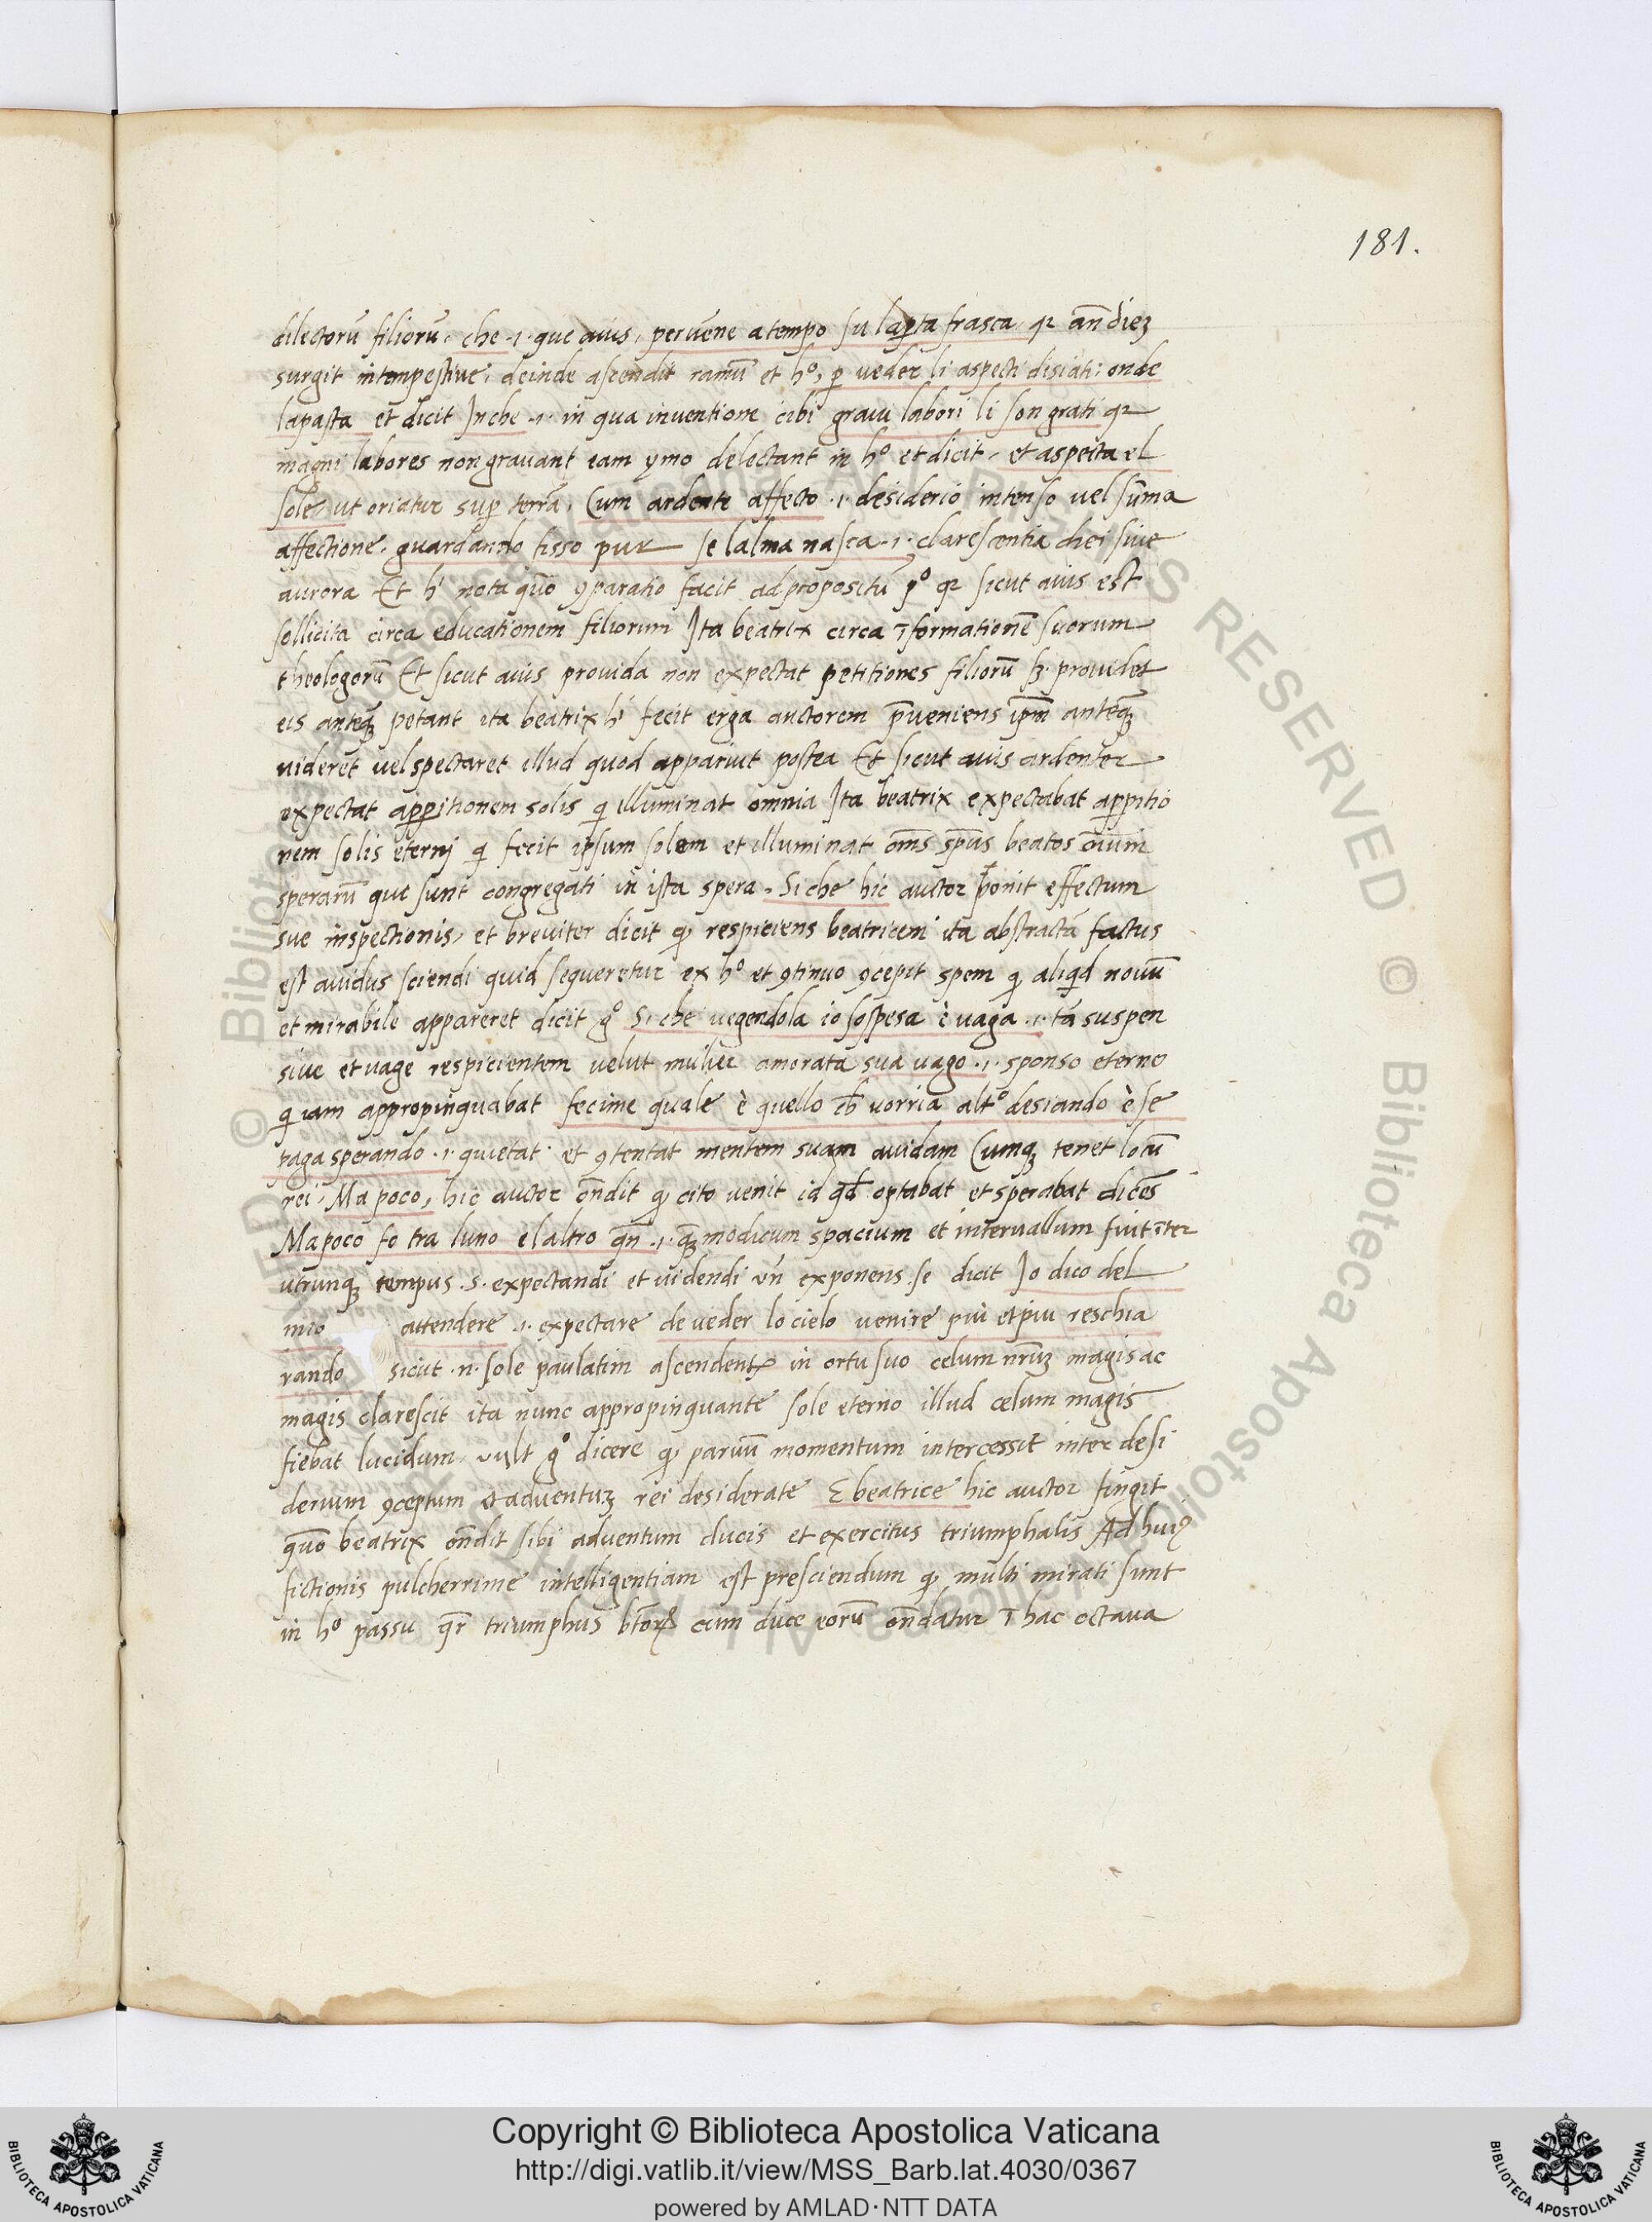 181.
dilectorū filiorū, che .i. que auis, pervēne a tempo su lap̱ta frasca, qꝛ an̄ dieꝫ
surgit intempestiue, deinde ascendit ramū et hº, ꝑ ueder li aspecti disiati: onde
lapasta et dicit Jnche .i. in qua inventione cibi graui labori li son grati qꝛ
magni labores non gravant eam ymo delectant in hº et dicit, et aspecta el
sole, ut oriatur suꝑ terrā, Cum ardente affecto .i. desiderio intenso vel sūma
affectione, guardando fisso pur se lalma nasca .i. clarescentia diei sive
aurora Et h' nota quō ꝯparatio facit ad propositū pº qꝛ sicut auis est
sollicita circa educationem filiorum Ita beatrix circa īformationē suorum
theologorū Et sicut auis prouida non expectat petitiones filiorū sꝫ prouidet
eis anteqꝫ petant ita beatrix h' fecit erga auctorem p̄ueniens ip̄m anteqꝫ
uideret uel spectaret illud quod apparuit postea Et sicut auis ardenter
expectat apꝑitionem solis qi illuminat omnia Ita beatrix expectabat apꝑitio
nem solis eternj qi fecit ipsum solem et illuminat om̄s sp̄us beatos om̄ium
sperarū que sunt congregati in ista spera. Si che hic auctor ponit effectum
sue inspectionis, et breviter dicit ꝙ respiciens beatricem ita abstractā factus
est auidus sciendi quid sequeretur ex hº et ꝯtinuo ꝯcepit spem ꝙ aliqd nouū
et mirabile appareret dicit gº Si che uegendola io sospesa è uaga .i. tā suspen
sive et uage respicientem velut mulier amorata sua uago .i. sponso eterno
qi iam appropinquabat fecime quale è quello cħ uorria altº desiando è se
paga sperando .i. quietat et ꝯtentat mentem suam auidam Cumqꝫ tenet locū
rei, Ma poco, hic auctor on̄dit ꝙ cito venit id qđ optabat et sperabat dicēs
Ma poco fo tra luno elaltro qn̄ .i. qꝫ modicum spacium et intervallum fuit īter
utrunqꝫ tempus .s. expectandi et uidendi vn̄ exponens se dicit Io dico del
mio attendere .i. expectare de veder lo cielo venire più et piu reschia
rando sicut .n. sole paulatim ascendente in ortu suo celum nr̄uꝫ magis ac
magis clarescit ita nunc appropinquante sole eterno illud celum magis
fiebat lucidum, vult gº dicere ꝙ paruū momentum intercessit inter desi
derium ꝯceptum et adventuꝫ rei desiderate E beatrice hic auctor fingit
quō beatrix on̄dit sibi adventum ducis et exercitus triumphalis Ad huiꝰ
fictionis pulcherrime intelligentiam est presciendum ꝙ multi mirati sunt
in hº passu qr̄ triumphus bt̄oꝝ cum duce eorū on̄datur ī hac octaua
Copyright © Biblioteca Apostolica Vaticana
http://digi.vatlib.it/view/MSS_Barb.lat.4030/0367
powered by AMLAD·NTT DATA
BIBLIOTECA APOSTOLICA VATICANA
BIBLIOTECA APOSTOLICA VATICANA